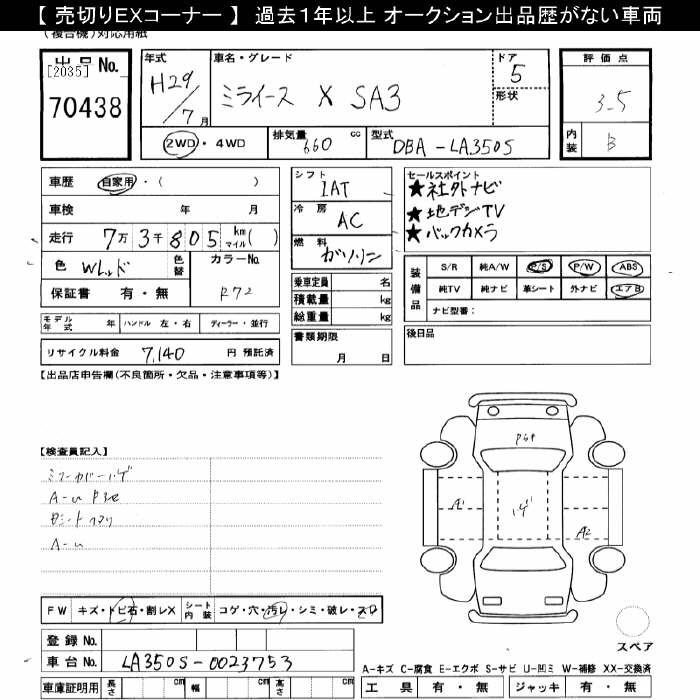 【 売切りEXコーナー 】 過去1年以上 オークション出品歴がない車両
(複合機)対応用紙
出品 No.
[2035]
70438
年式
H29/7月
車名・グレード
ミライース X SA3
ドア
5
形状
評価点
3.5
内装
B
2WD・4WD
排気量
660
cc
型式
DBA-LA350S
車歴
自家用・( )
車検
年 月
走行
7万3千805 km マイル( )
色
色替
カラーNo.
R72
保証書
有・無
モデル年式
年
ハンドル 左・右
ディーラー・並行
リサイクル料金
7,140
円 預託済
シフト
IAT
冷房
AC
燃料
ガソリン
乗車定員
名
積載量
kg
総重量
kg
書類期限
月 日
セールスポイント
★社外ナビ
★地デジTV
★バックカメラ
装備品
S/R 純A/W P/S P/W ABS
純TV 純ナビ 革シート 外ナビ エアB
ナビ型番:
後日品
【出品店申告欄(不良箇所・欠品・注意事項等)】
【検査員記入】
A-U
A1
A2
FW
キズ・トビ石・割レX
シート内装
コゲ・穴・汚レ・シミ・破レ・スレ
登録 No.
車台 No.
LA350S-0023753
車庫証明用
長さ
cm
幅
cm
高さ
cm
スペア
A-キズ C-腐食 E-エクボ S-サビ U-凹ミ W-補修 XX-交換済
工具
有・無
ジャッキ
有・無